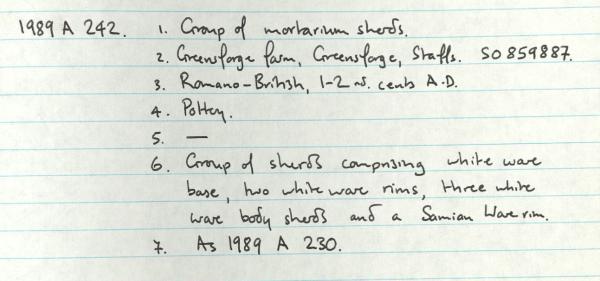 1989 A 242. 1. Group of mortarium sherds.
2. Greensforge farm, Greensforge, Staffs. SO 859887.
3. Romano-British, 1-2 nd. cents A.D.
4. Pottery.
5. —
6. Group of sherds comprising white ware
base, two white ware rims, three white
ware body sherds and a Samian Ware rim.
7. As 1989 A 230.